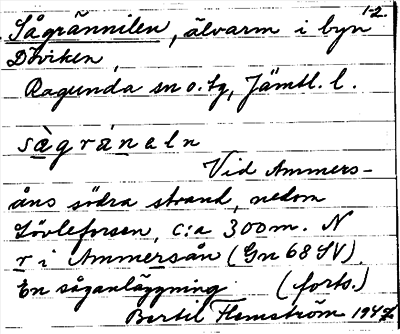 1-2.
Sågrännilen, älvarm i byn
Döviken,
Ragunda sn o. tg, Jämtl. l.
sågrä́neln
Vid Ammers-
åns södra strand, nedom
Lövleforsen, c:a 300 m. N
r i Ammersån (Gn 68 SV).
En såganläggning (forts.)
Bertil Flemström 1947